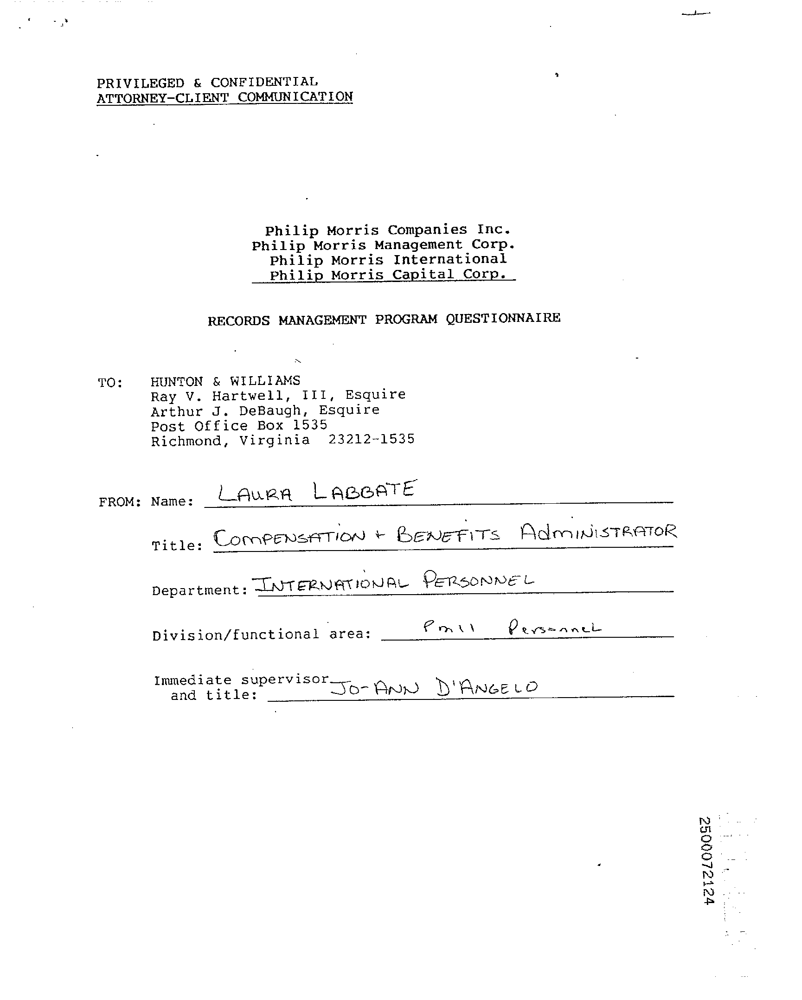 PRIVILEGED & CONFIDENTIAL
ATTORNEY-CLIENT COMMUNICATION
Philip Morris Companies Inc.
Philip Morris Management Corp.
Philip Morris International
Philip Morris Capital Corp.
RECORDS MANAGEMENT PROGRAM QUESTIONNAIRE
TO: HUNTON & WILLIAMS
Ray V. Hartwell, III, Esquire
Arthur J. DeBaugh, Esquire
Post Office Box 1535
Richmond, Virginia 23212-1535
FROM: Name: LAURA LABBATE
Title: COMPENSATION + BENEFITS ADMINISTRATOR
Department: INTERNATIONAL PERSONNEL
Division/functional area: Personnel
Immediate supervisor
and title: JO-ANN D'ANGELO
2500072124